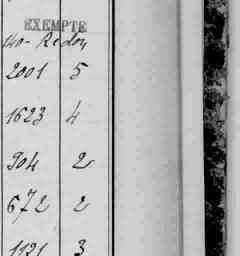 EXEMPTE
2001 5
1623 4
904 2
672 2
1121 3